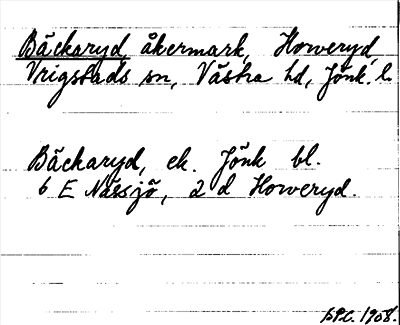 Bäckaryd åkermark, Horveryd,
Vrigstads sn, Västra hd, Jönk. l.
Bäckaryd, ek. Jönk bl.
6 E Nässjö, 2 d Horveryd.
1908.